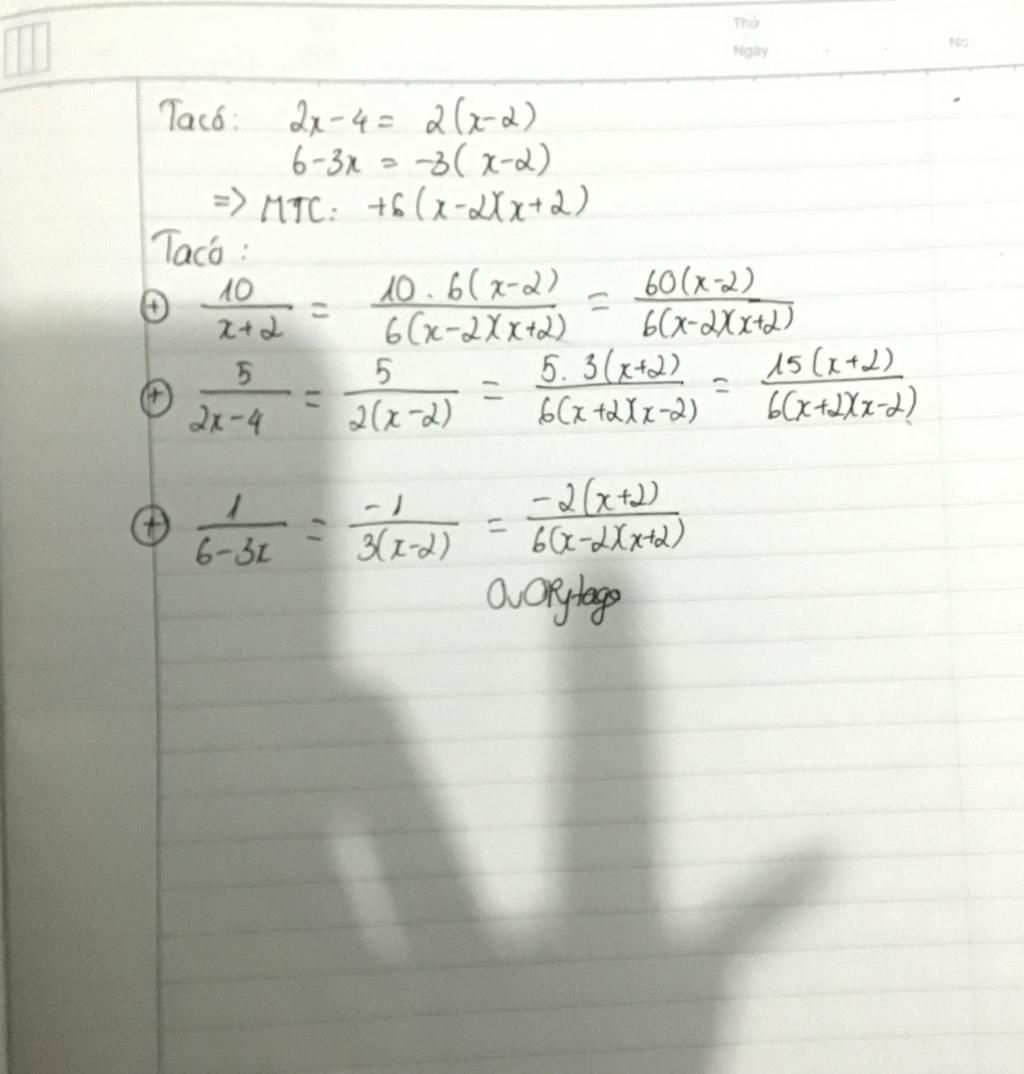 Thứ
Ngày
No.
Ta có: 2x-4 = 2(x-2)
6-3x = -3(x-2)
=> MTC: +6(x-2)(x+2)
Ta có:
⊕ 10/(x+2) = 10.6(x-2)/6(x-2)(x+2) = 60(x-2)/6(x-2)(x+2)
⊕ 5/(2x-4) = 5/2(x-2) = 5.3(x+2)/6(x+2)(x-2) = 15(x+2)/6(x+2)(x-2)
⊕ 1/(6-3x) = -1/3(x-2) = -2(x+2)/6(x-2)(x+2)